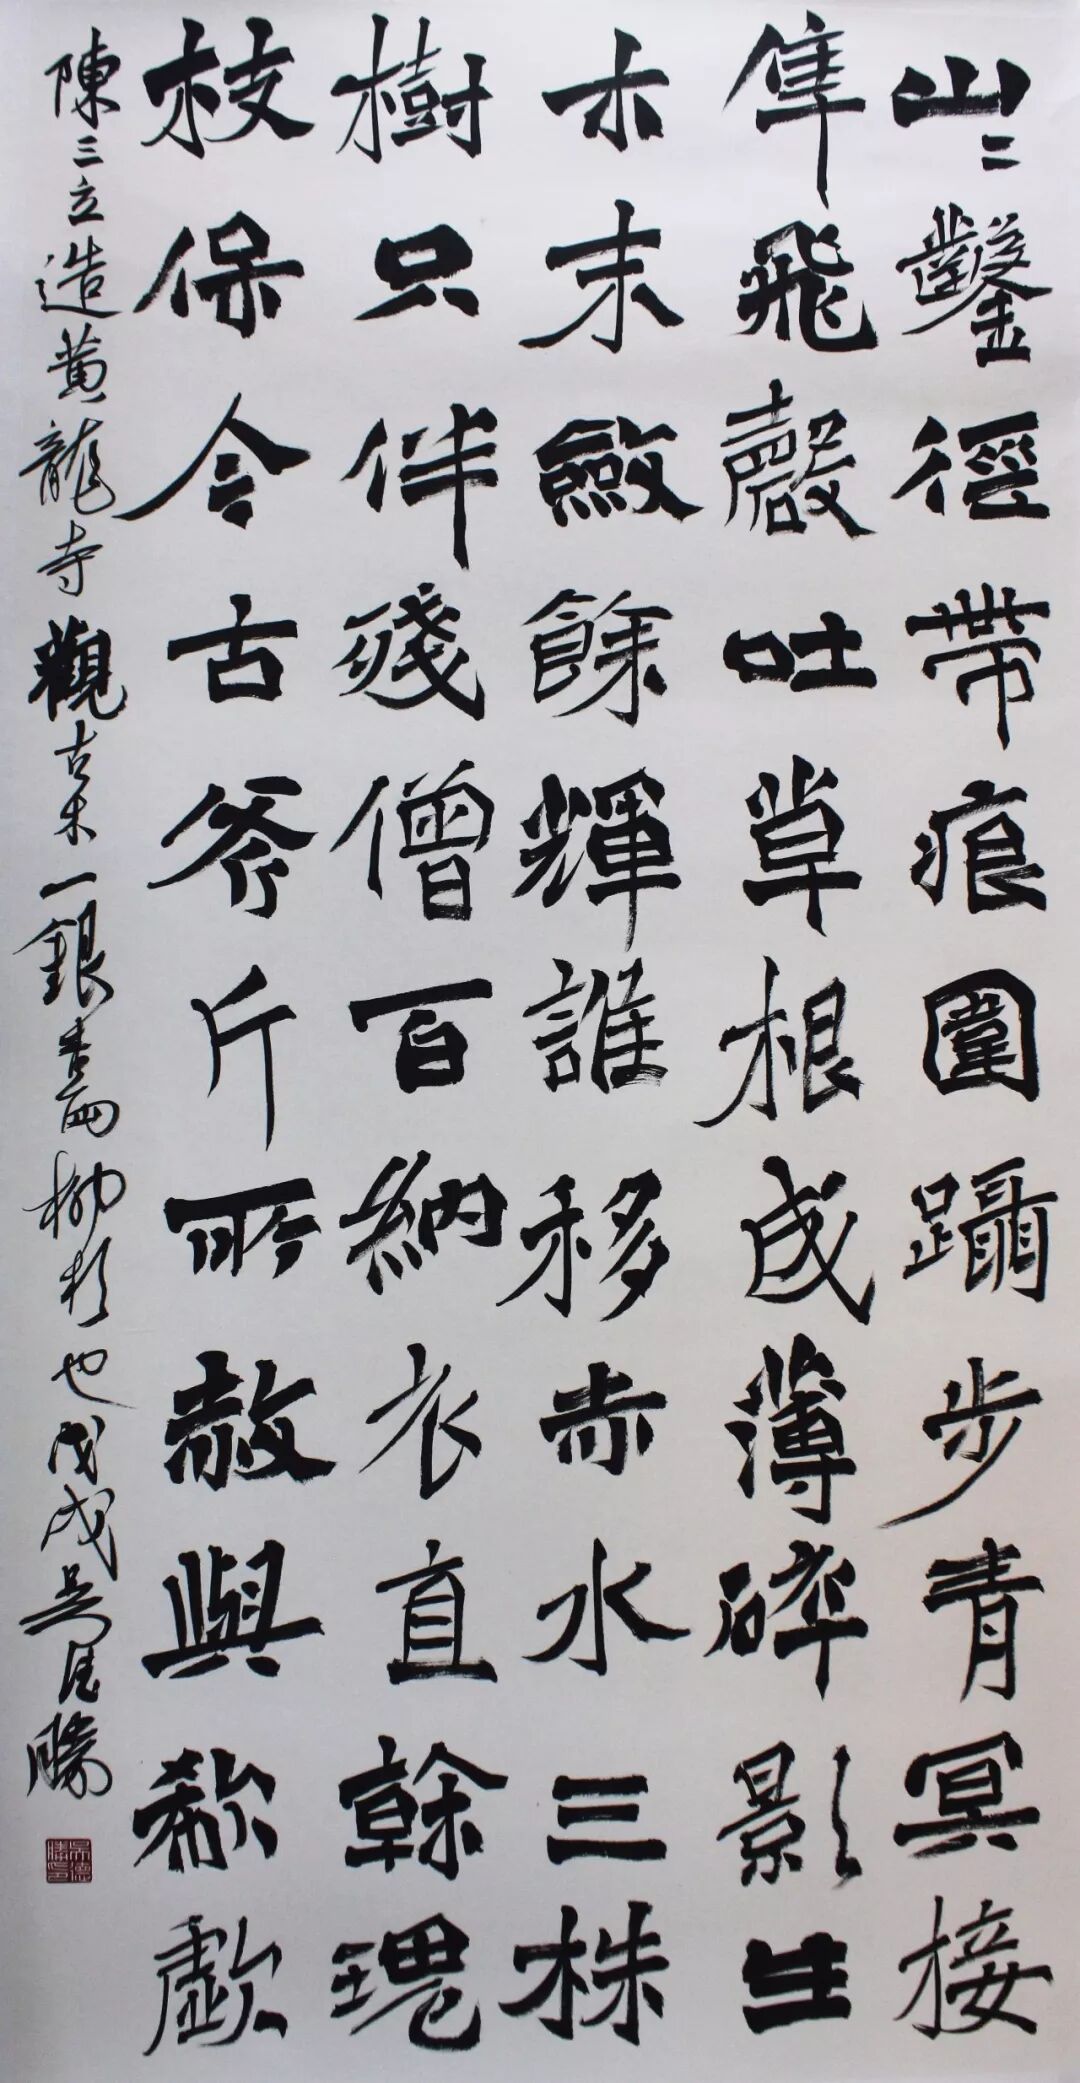 山〻鑿徑帶痕圍躡步青冥接
隼飛磬吐草根成薄碎影生
木末斂餘輝誰移赤水三株
樹只伴殘僧百納衣直榦瑰
枝保今古斧斤所赦與欷歔
陳三立造黃龍寺觀古木一銀杏兩柳杉也戊戌吳德勝
吳德勝印